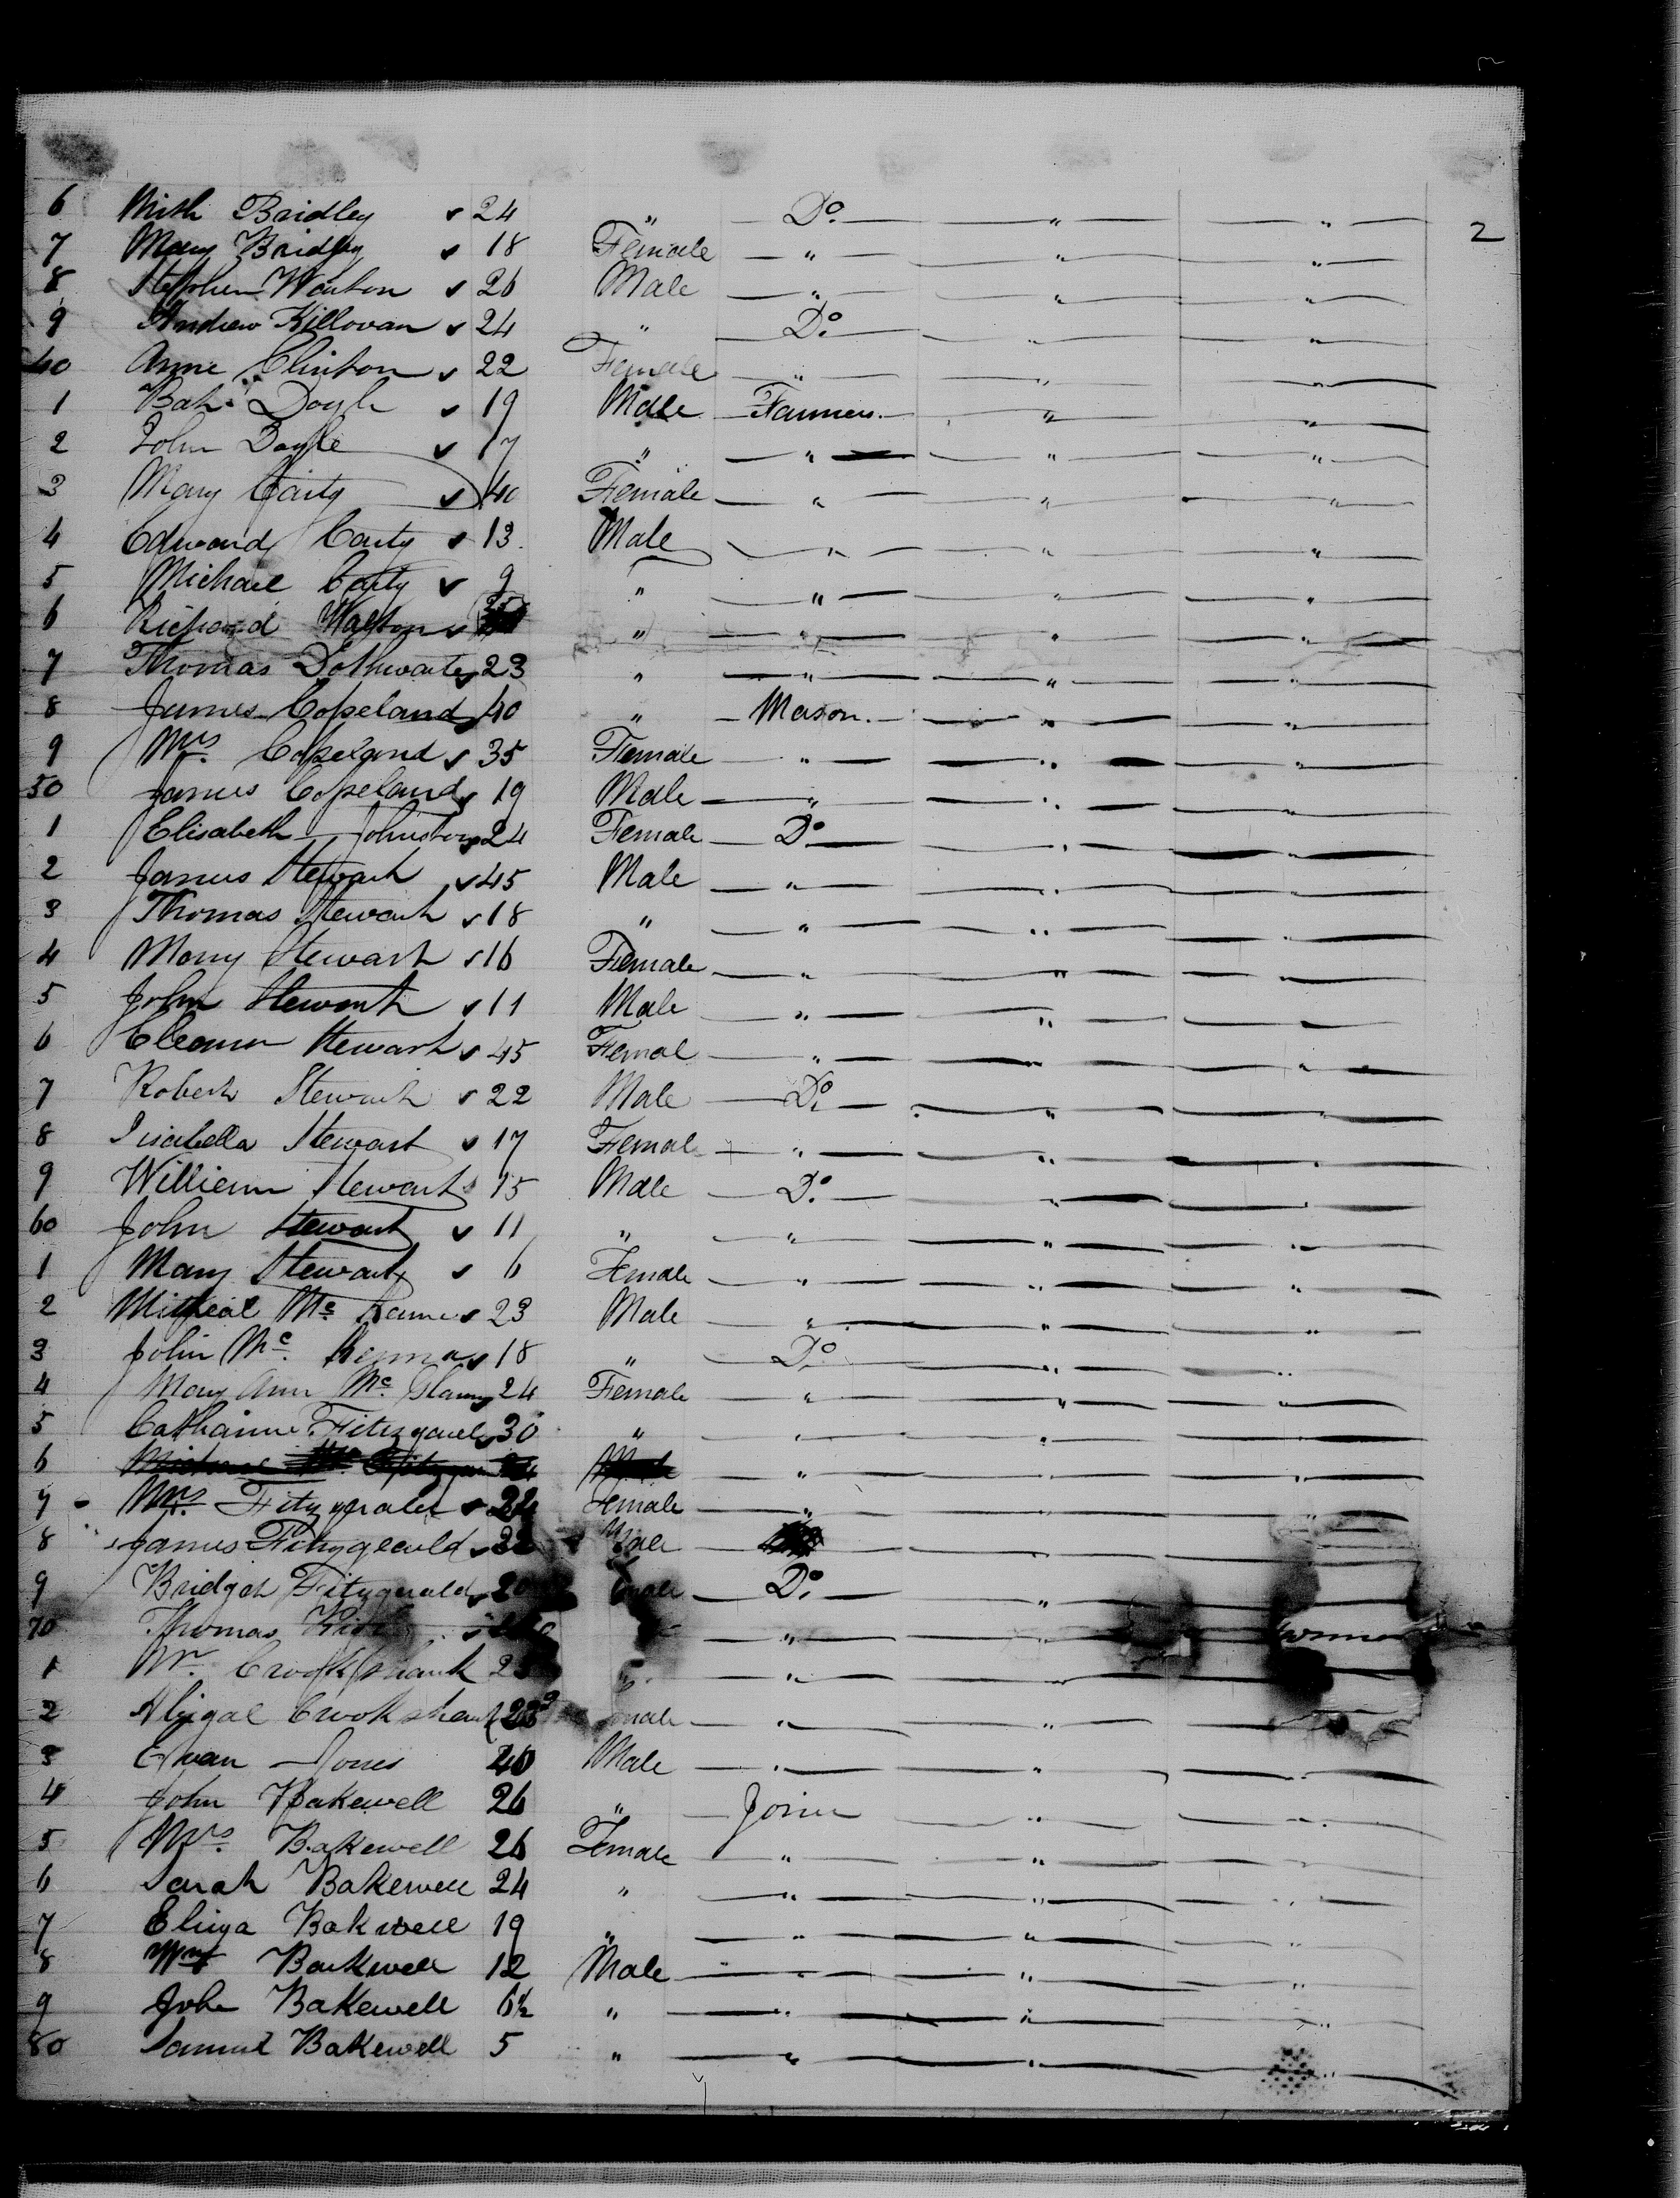 2
6 Mich Bridley 24 " Do " "
7 Mary Bridley 18 Female " " "
8 Stephen Warton 26 Male " " "
9 Andrew Killovan 24 " Do " "
40 Anne Clinton 22 Female " " "
1 Doyle 19 Male Farmer " "
2 John Doyle 17 " " " "
3 Mary Carty 40 Female " " "
4 Edward Carty 13 Male " " "
5 Michael Carty 9 " " " "
6 Richard Walton " " " "
7 Thomas Dothwaite 23 " " " "
8 James Copeland 40 " Mason " "
9 Mrs Copeland 35 Female " " "
50 James Copeland 19 Male " " "
1 Elisabeth Johnston 24 Female Do " "
2 James Stewart 45 Male " " "
3 Thomas Stewart 18 " " " "
4 Mary Stewart 16 Female " " "
5 John Stewart 11 Male " " "
6 Eleanor Stewart 45 Femal " " "
7 Robert Stewart 22 Male Do " "
8 Isabella Stewart 17 Female " " "
9 William Stewart 15 Male Do " "
60 John Stewart 11 " " " "
1 Mary Stewart 6 Female " " "
2 Micheal Mc 23 Male " " "
3 John Mc Kenna 18 " Do " "
4 Mary Ann Mc 24 Female " " "
5 Catharine Fitzgarel 30 " " " "
6 " " "
7 Mrs Fitzgerald Female " " "
8 James Fitzgerald Male
9 Bridget Fitzgerald Do "
70 Thomas "
1 Crookshank " " "
2 Abigal Crookshank " " "
3 Evan Jones 40 Male " " "
4 John Bakewell 26 " Joiner " "
5 Mrs Bakewell 26 Female " " "
6 Sarah Bakewell 24 " " " "
7 Eliza Bakewell 19 " " " "
8 Wm Bakewell 12 Male " " "
9 John Bakewell 6½ " " " "
80 Samuel Bakewell 5 " " " "